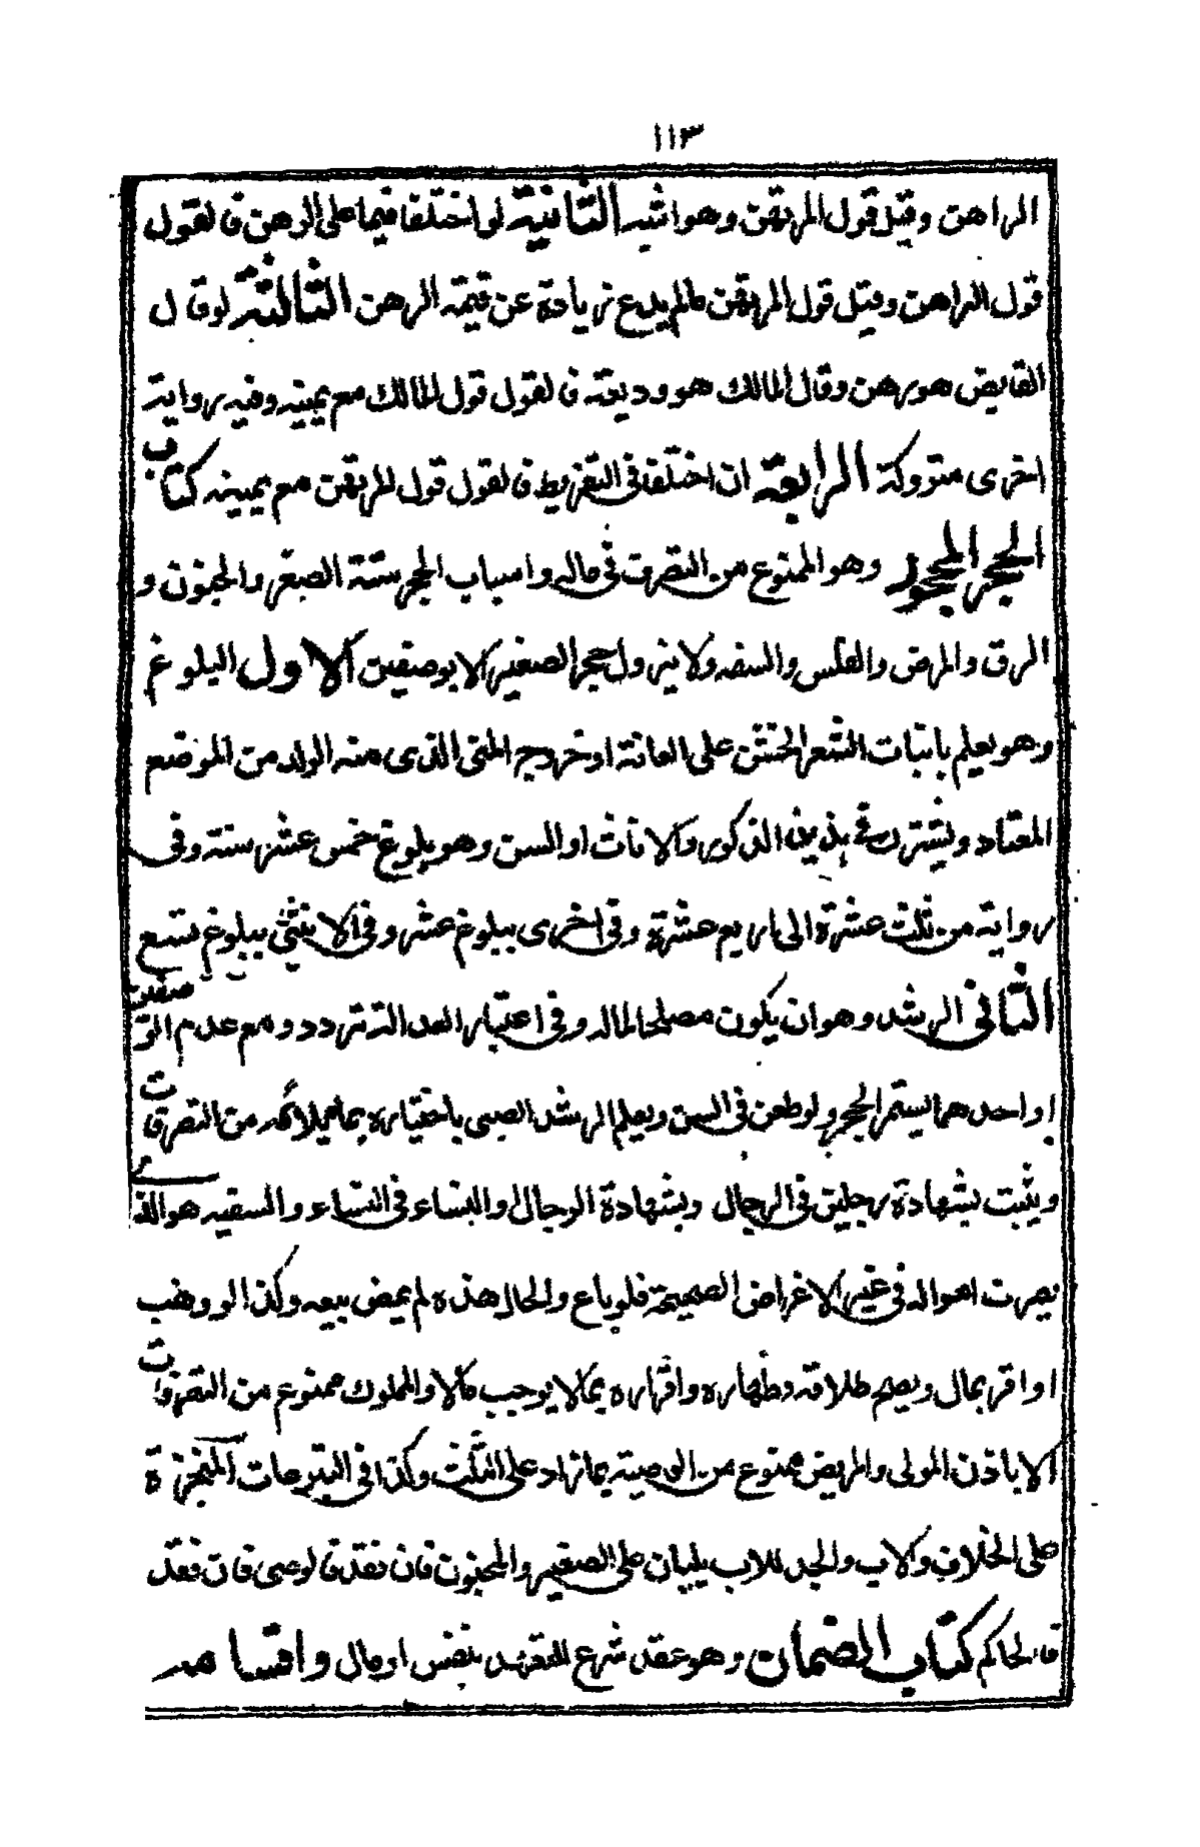 ١١٣
الراهن وقيل قول المرتهن وهو اشبه الثانية لو اختلفا فيما على الرهن فالقول
قول الراهن وقيل قول المرتهن مالم يدع زيادة عن قيمة الرهن الثالثة لو قال
القابض هو رهن وقال المالك هو وديعة فالقول قول المالك مع يمينه وفيه رواية
اخرى متروكة الرابعة ان اختلفا في التفريط فالقول قول المرتهن مع يمينه كتاب
الحجر المحجور وهو الممنوع من التصرف في ماله واسباب الحجر ستة الصغر والجنون و
الرق والمرض والفلس والسفه ولا يزول حجر الصغير الا بوصفين الاول البلوغ
وهو يعلم بانبات الشعر الخشن على العانة او خروج المني الذى منه الولد من الموضع
المعتاد ويشترك في هذين الذكور والاناث او السن وهو بلوغ خمس عشر سنة وفى
رواية من ثلث عشرة الى اربع عشرة وفى اخرى ببلوغ عشر وفى الانثى ببلوغ تسع
سنين
الثانى الرشد وهو ان يكون مصلحا لماله وفى اعتبار العدالة تردد ومع عدم الو
او احدهما يستمر الحجر ولو طعن في السن ويعلم الرشد الصبى باختياره بما يلائمه من التصرفات
ويثبت بشهادة رجلين في الرجال وبشهادة الرجال والنساء في النساء والسفيه هو الذى
يصرف امواله في غير الاغراض الصحيحة فلو باع والحال هذه لم يمض بيعه وكذا لو وهب
او اقر بمال ويصح طلاقه وظهاره واقراره بما لا يوجب مالا والمملوك ممنوع من التصرفات
الا باذن المولى والمريض ممنوع من الوصية بما زاد على الثلث وكذا في التبرعات المنجزة
على الخلاف والاب والجد للاب يليان على الصغير والمجنون فان فقد فالوصى فان فقد
فالحاكم كتاب الضمان وهو عقد شرع للتعهد بنفس او مال واقسامه